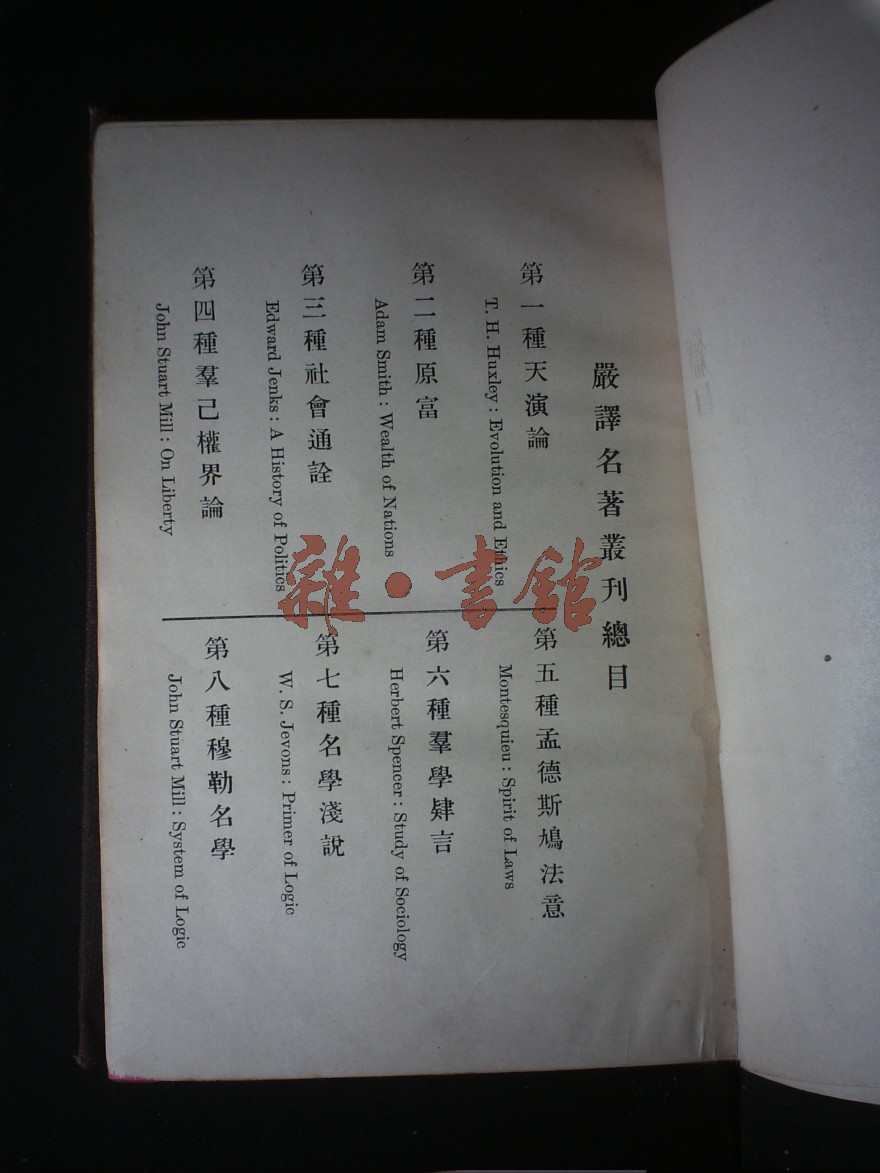 嚴譯名著叢刊總目
第一種天演論
T. H. Huxley: Evolution and Ethics
第二種原富
Adam Smith: Wealth of Nations
第三種社會通詮
Edward Jenks: A History of Politics
第四種羣己權界論
John Stuart Mill: On Liberty
第五種孟德斯鳩法意
Montesquieu: Spirit of Laws
第六種羣學肄言
Herbert Spencer: Study of Sociology
第七種名學淺說
W. S. Jevons: Primer of Logic
第八種穆勒名學
John Stuart Mill: System of Logic
雜·書館